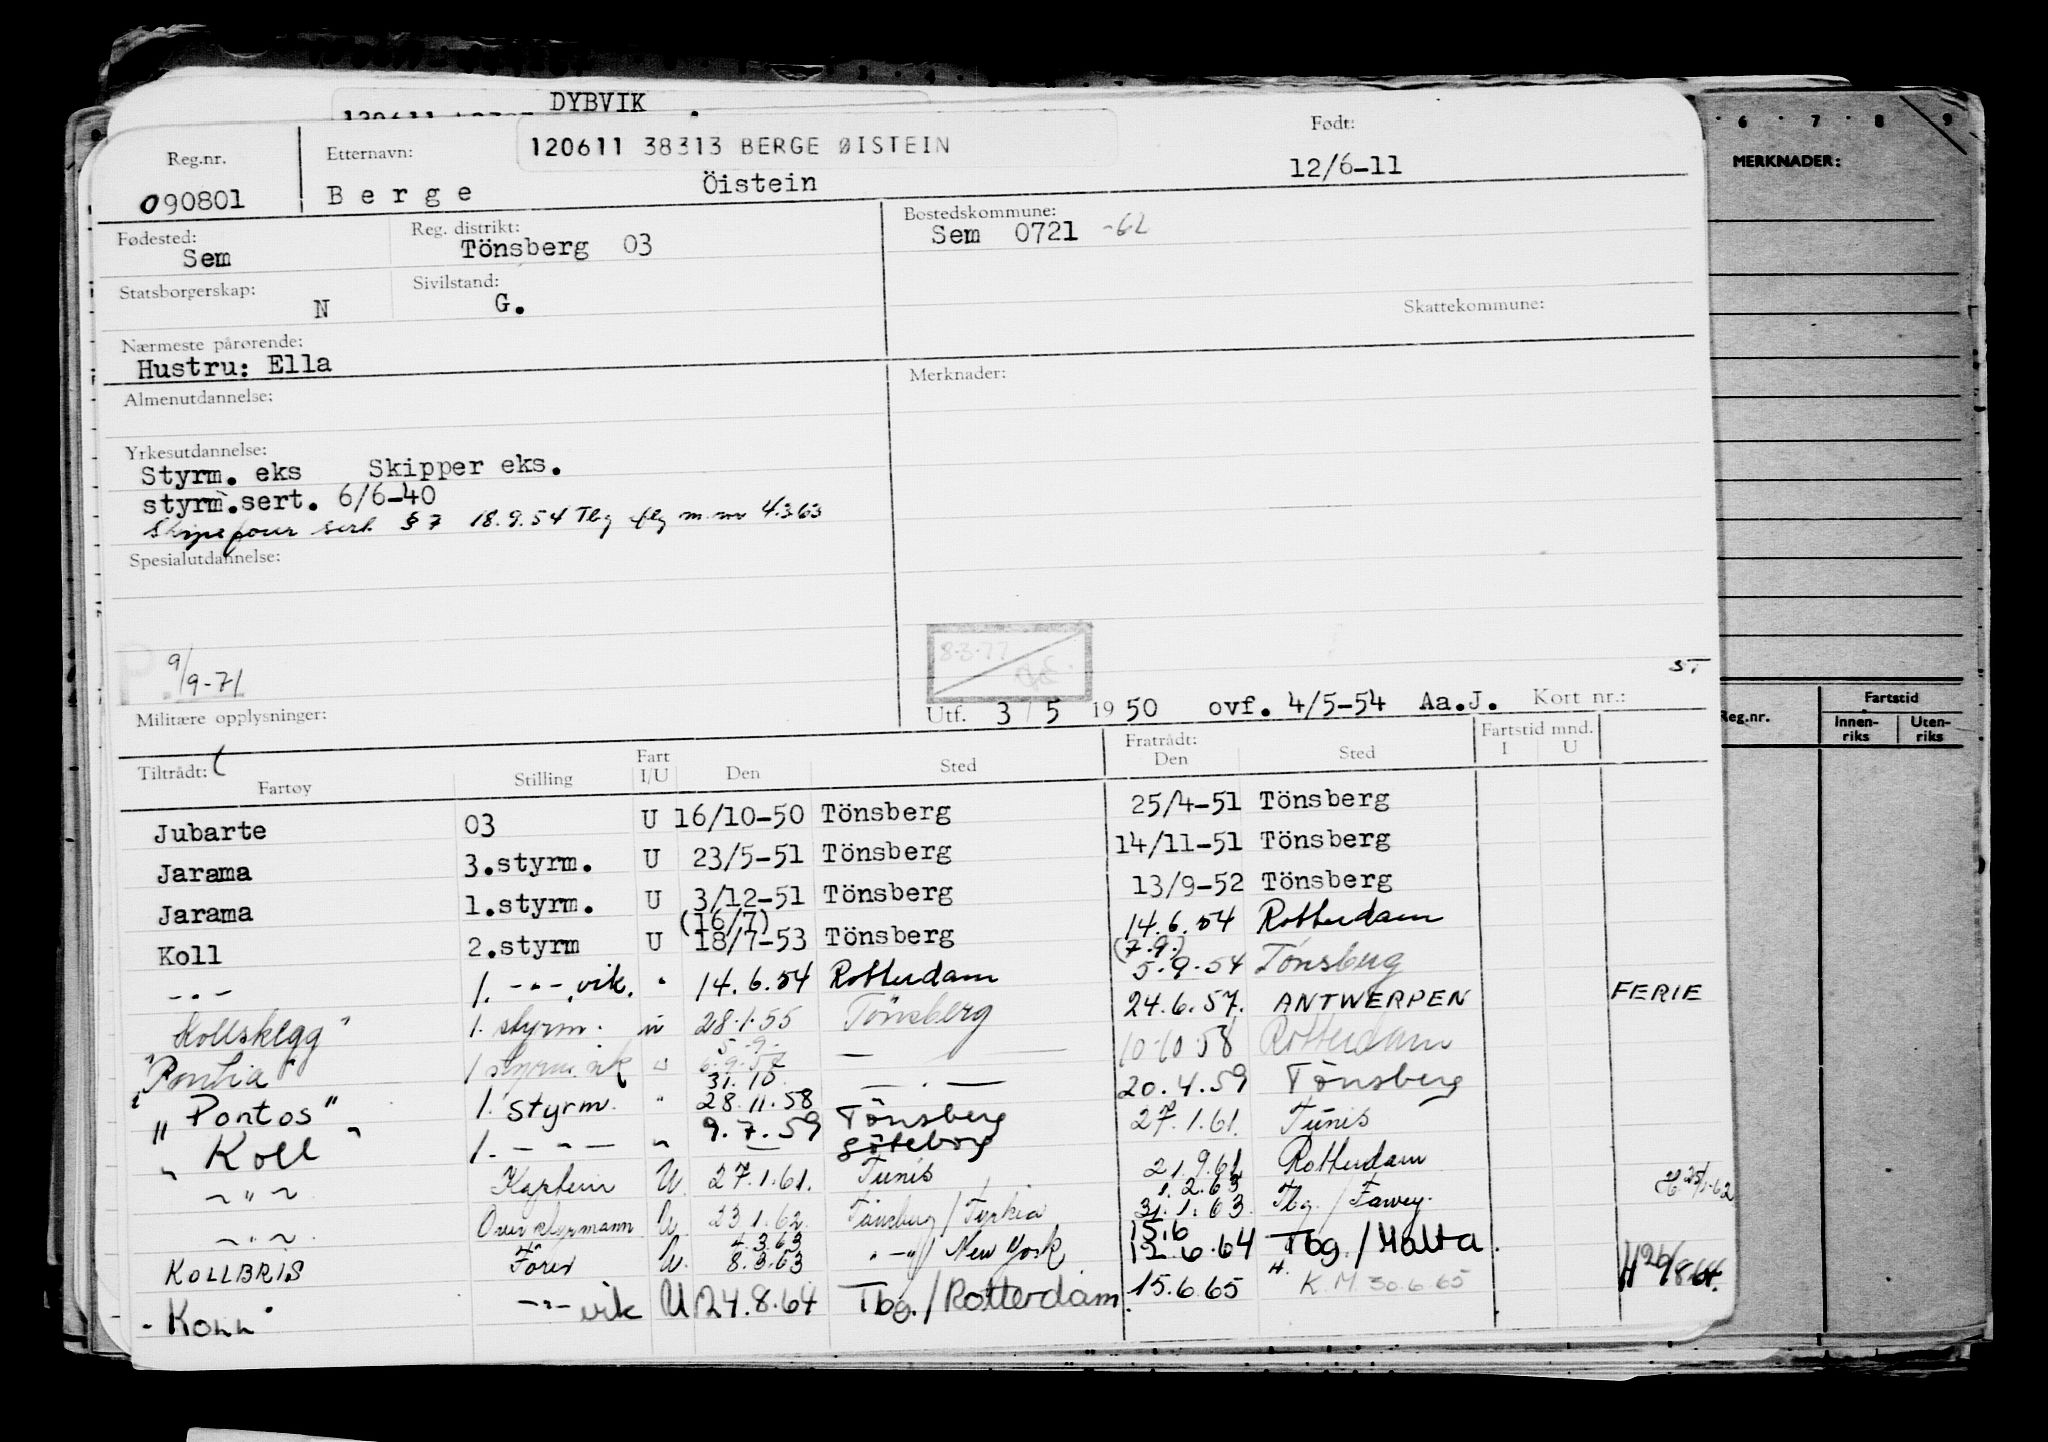 DYBVIK
6 7 8 9
MERKNADER:
Reg.nr. Etternavn: 120611 38313 BERGE ØISTEIN Født:
090801 Berge Öistein 12/6-11
Fødested: Reg. distrikt: Bostedskommune:
Sem Tönsberg 03 Sem 0721 -62
Statsborgerskap: Sivilstand:
N G. Skattekommune:
Nærmeste pårørende:
Hustru: Ella Merknader:
Almenutdannelse:
Yrkesutdannelse:
Styrm. eks Skipper eks.
styrm.sert. 6/6-40
sert § 7 18.9.54 Tbg 4.3.63
Spesialutdannelse:
8.3.77
9/9-71 ST
Militære opplysninger: Utf. 3/5 1950 ovf. 4/5-54 Aa.J. Kort nr.:
Reg.nr. Fartstid
Innen-riks Uten-riks
Tiltrådt: Fart Fratrådt: Fartstid mnd.
Fartøy Stilling I/U Den Sted Den Sted I U
Jubarte 03 U 16/10-50 Tönsberg 25/4-51 Tönsberg
Jarama 3.styrm. U 23/5-51 Tönsberg 14/11-51 Tönsberg
Jarama 1.styrm. U 3/12-51 Tönsberg 13/9-52 Tönsberg
Koll 2.styrm U (16/7) 18/7-53 Tönsberg 14.6.54 Rotterdam
- " - 1. - " - vik. " 14.6.54 Rotterdam (7.9.) 5.9.54 Tönsberg
Kollskegg" 1. styrm. " 28.1.55 Tönsberg 24.6.57. ANTWERPEN FERIE
"Pontia" 1 styrm. vik " 5.9. 6.9.57 — 10.10.58 Rotterdam
"Pontos" 1. styrm. " 31.10. 28.11.58 — . — Tönsberg 20.4.59 Tönsberg
" Koll " 1. - " - " 9.7.59 Göteborg 27.1.61. Tunis
~ " ~ Kaptein U. 27.1.61. Tunis 21.9.61 Rotterdam
~ " ~ Overstyrmann U. 23.1.62. Tönsberg / Tyrkia 1.2.63 31.1.63. Tbg. / Fowey. H 25/1-62
KOLLBRIS Förer U. 4.3.63 8.3.63 " - " / New York 15.6 12.6.64 Tbg. / Malta.
- KOLL " - " - vik U 24.8.64 Tbg. / Rotterdam 15.6.65 K.M 30.6.65 H 20/8.64.